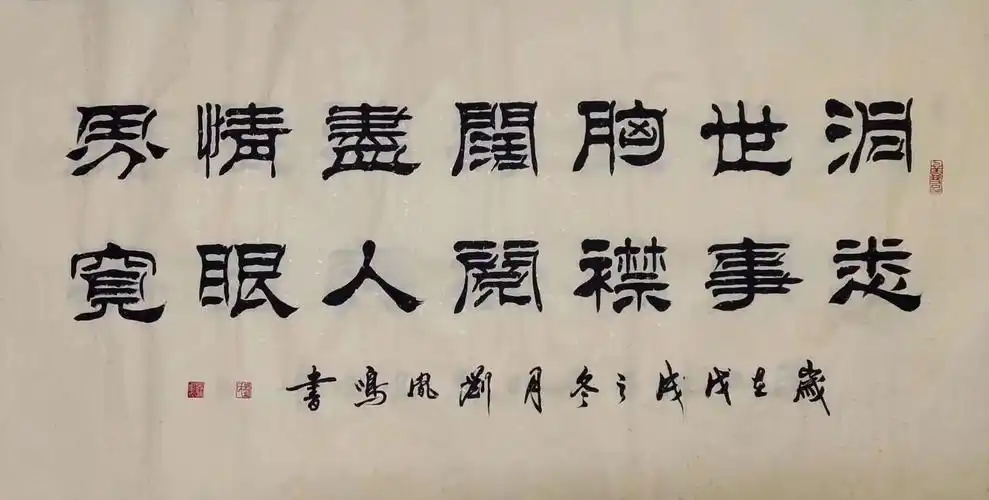 洞悉
世事
胸襟
闊閱
盡人
情眼
界寬
歲在戊戌之冬月劉鳳鳴書